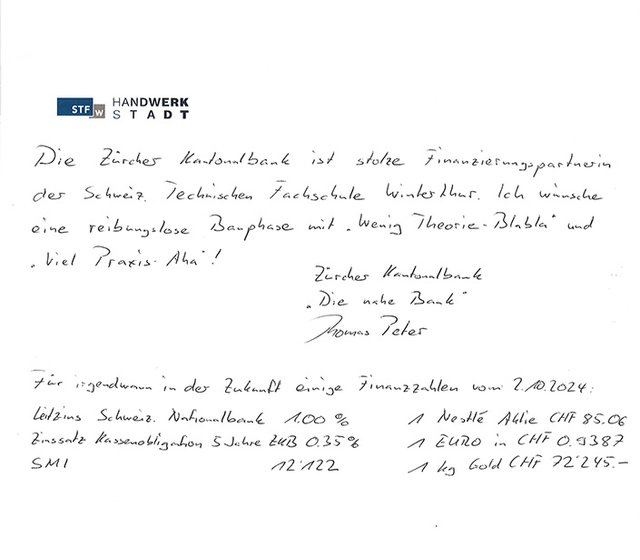 STF W HANDWERK
STADT
Die Zürcher Kantonalbank ist stolze Finanzierungspartnerin
der Schweiz. Technischen Fachschule Winterthur. Ich wünsche
eine reibungslose Bauphase mit „Wenig Theorie-Blabla" und
„Viel Praxis-Aha"!
Zürcher Kantonalbank
„Die nahe Bank"
Thomas Peter
Für irgendwann in der Zukunft einige Finanzzahlen vom 2.10.2024:
Leitzins Schweiz. Nationalbank 1.00 % 1 Nestlé Aktie CHF 85.06
Zinssatz Kassenobligation 5 Jahre ZKB 0.35% 1 EURO in CHF 0.9387
SMI 12'122 1 kg Gold CHF 72'245.-